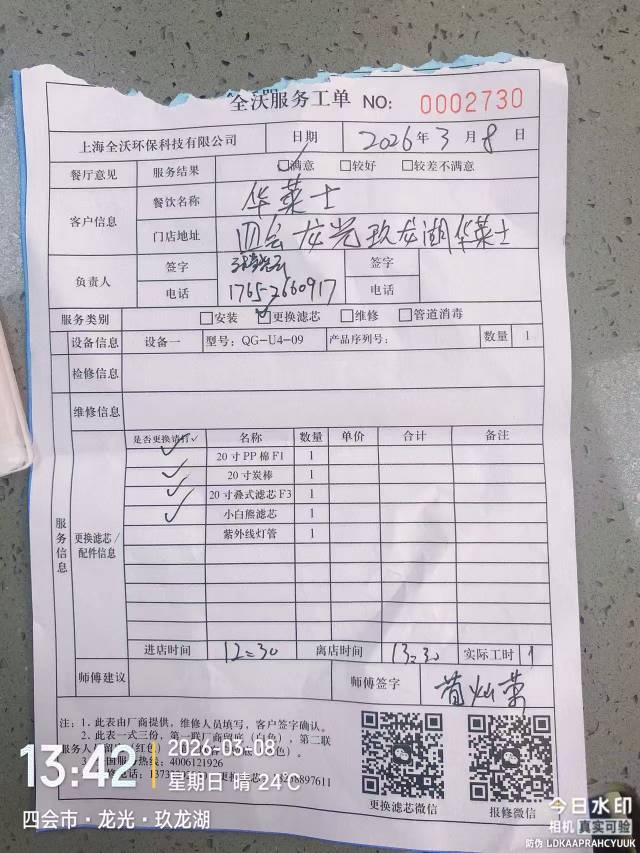 全沃服务工单 NO: 0002730
上海全沃环保科技有限公司 日期 2026年3月8日
餐厅意见 服务结果 ☑满意 □较好 □较差不满意
客户信息 餐饮名称 华莱士
门店地址 四会龙光玖龙湖华莱士
负责人 签字 签字
电话 17652660917 电话
服务类别 □安装 ☑更换滤芯 □维修 □管道消毒
设备信息 设备一 型号: QG-U4-09 产品序列号: 数量 1
检修信息
维修信息
服务信息 更换滤芯/配件信息
是否更换请打✓ 名称 数量 单价 合计 备注
✓ 20寸PP棉F1 1
✓ 20寸炭棒 1
✓ 20寸叠式滤芯F3 1
✓ 小白熊滤芯 1
紫外线灯管 1
进店时间 12:30 离店时间 13:30 实际工时 1
师傅建议 师傅签字
注: 1. 此表由厂商提供, 维修人员填写, 客户签字确认。
2. 此表一式三份, 第一联厂商留底(白色), 第二联
服务人员留
服务热线: 4006121926
更换滤芯微信 报修微信
13:42 2026.03.08
星期日 晴 24℃
四会市·龙光·玖龙湖
今日水印
相机 真实可验
防伪 LDKAAPRAHCYUUK